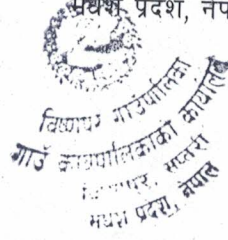 मधेश प्रदेश, नेप
विष्णुपुर गाउँपालिका
गाउँ कार्यपालिकाको कार्यालय
सप्तरी
मधेश प्रदेश, नेपाल